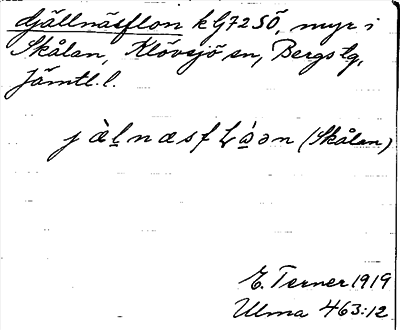 djällnäsflon kG72SÖ, myr i
Skålan, Klövsjö sn, Bergs tg,
Jämtl. l.
(Skålan)
E. Terner 1919
Ulma 463:12